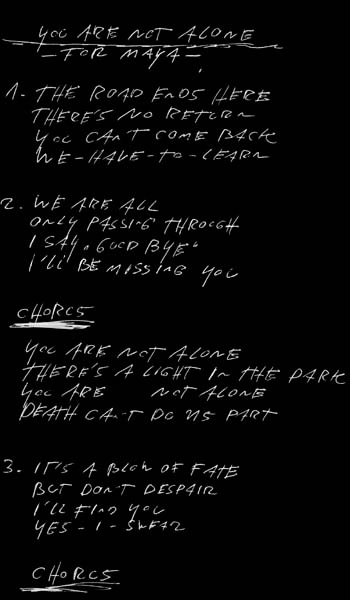 YOU ARE NOT ALONE
- FOR MAYA -
1. THE ROAD ENDS HERE
THERE'S NO RETURN
YOU CAN'T COME BACK
WE-HAVE-TO-LEARN
2. WE ARE ALL
ONLY PASSING THROUGH
I SAY „GOOD BYE"
I'LL BE MISSING YOU
CHORUS
YOU ARE NOT ALONE
THERE'S A LIGHT IN THE PARK
YOU ARE NOT ALONE
DEATH CAN'T DO US PART
3. IT'S A BLOW OF FATE
BUT DON'T DESPAIR
I'LL FIND YOU
YES-I-SWEAR
CHORUS